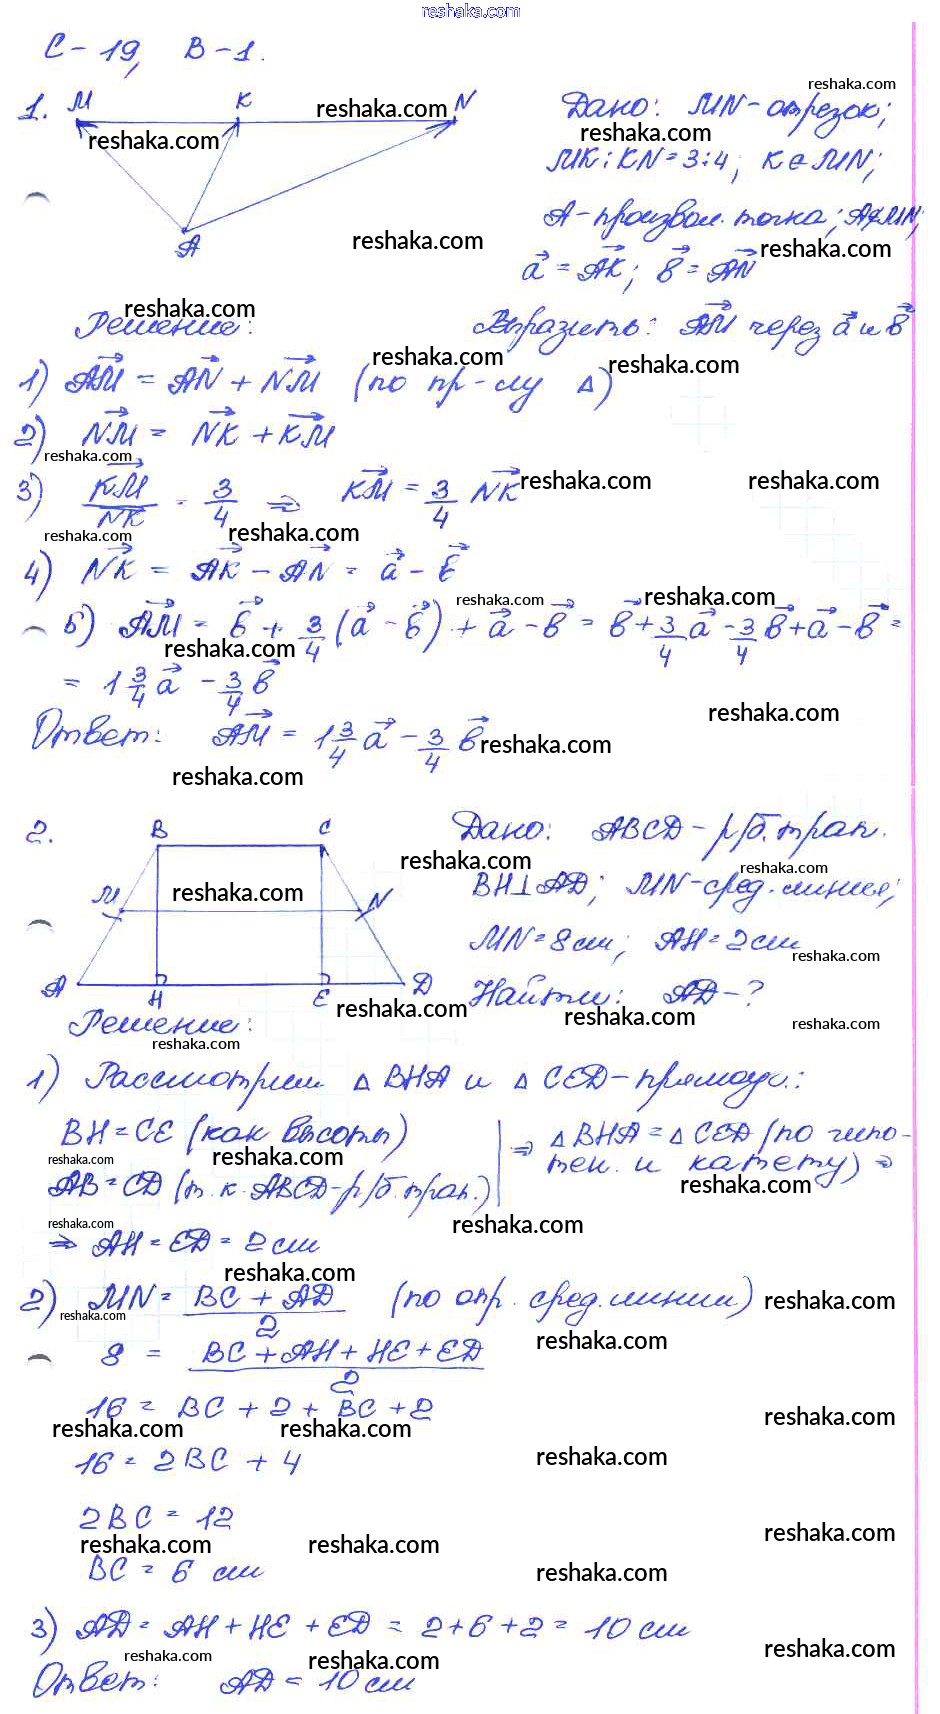 reshaka.com
С-19, В-1.
1. M K N
A
Дано: MN - отрезок;
MK : KN = 3:4; K ∈ MN;
A - произвол. точка; A ∉ MN;
a⃗ = AK⃗; в⃗ = AN⃗
Решение: Выразить: AM⃗ через a⃗ и в⃗
1) AM⃗ = AN⃗ + NM⃗ (по пр-лу Δ)
2) NM⃗ = NK⃗ + KM⃗
3) KM⃗/NK⃗ = 3/4 ⇒ KM⃗ = 3/4 NK⃗
4) NK⃗ = AK⃗ - AN⃗ = a⃗ - в⃗
5) AM⃗ = в⃗ + 3/4 (a⃗ - в⃗) + a⃗ - в⃗ = в⃗ + 3/4 a⃗ - 3/4 в⃗ + a⃗ - в⃗ =
= 1 3/4 a⃗ - 3/4 в⃗
Ответ: AM⃗ = 1 3/4 a⃗ - 3/4 в⃗
2. B C
M N
A H E D
Дано: ABCD - р/б. трап.
BH ⊥ AD; MN - сред. линия;
MN = 8 см; AH = 2 см
Найти: AD - ?
Решение:
1) Рассмотрим Δ BHA и Δ CED - прямоуг.:
BH = CE (как высоты)
AB = CD (т.к. ABCD - р/б. трап.)
⇒ Δ BHA = Δ CED (по гипо-
тен. и катету) ⇒
⇒ AH = ED = 2 см
2) MN = (BC + AD)/2 (по опр. сред. линии)
8 = (BC + AH + HE + ED)/2
16 = BC + 2 + BC + 2
16 = 2BC + 4
2BC = 12
BC = 6 см
3) AD = AH + HE + ED = 2+6+2 = 10 см
Ответ: AD = 10 см